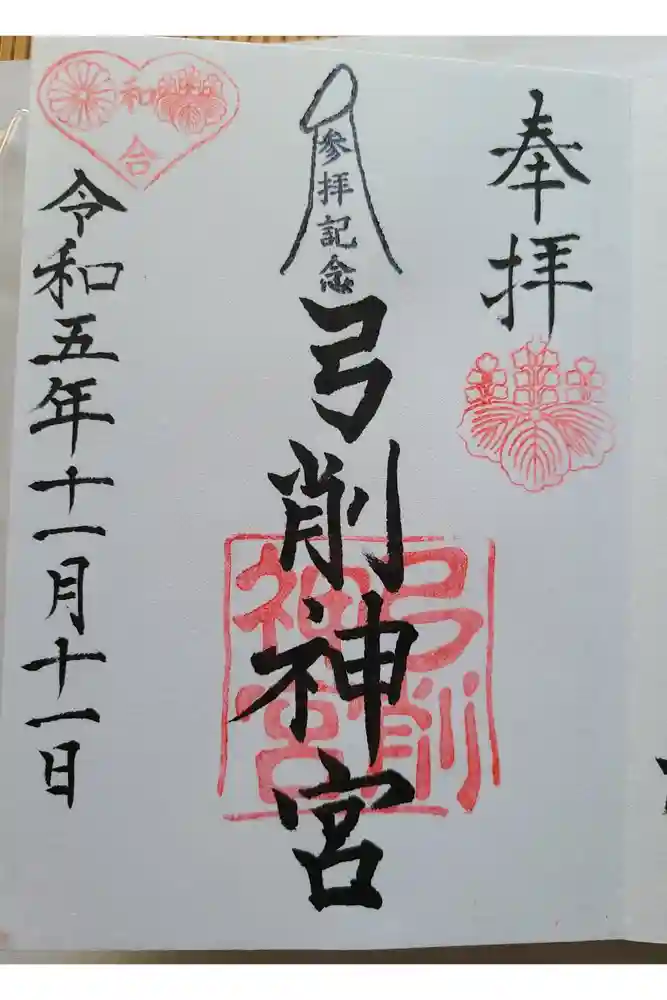 奉拝
参拝記念
弓削神宮
弓削
神宮
和合
令和五年十一月十一日